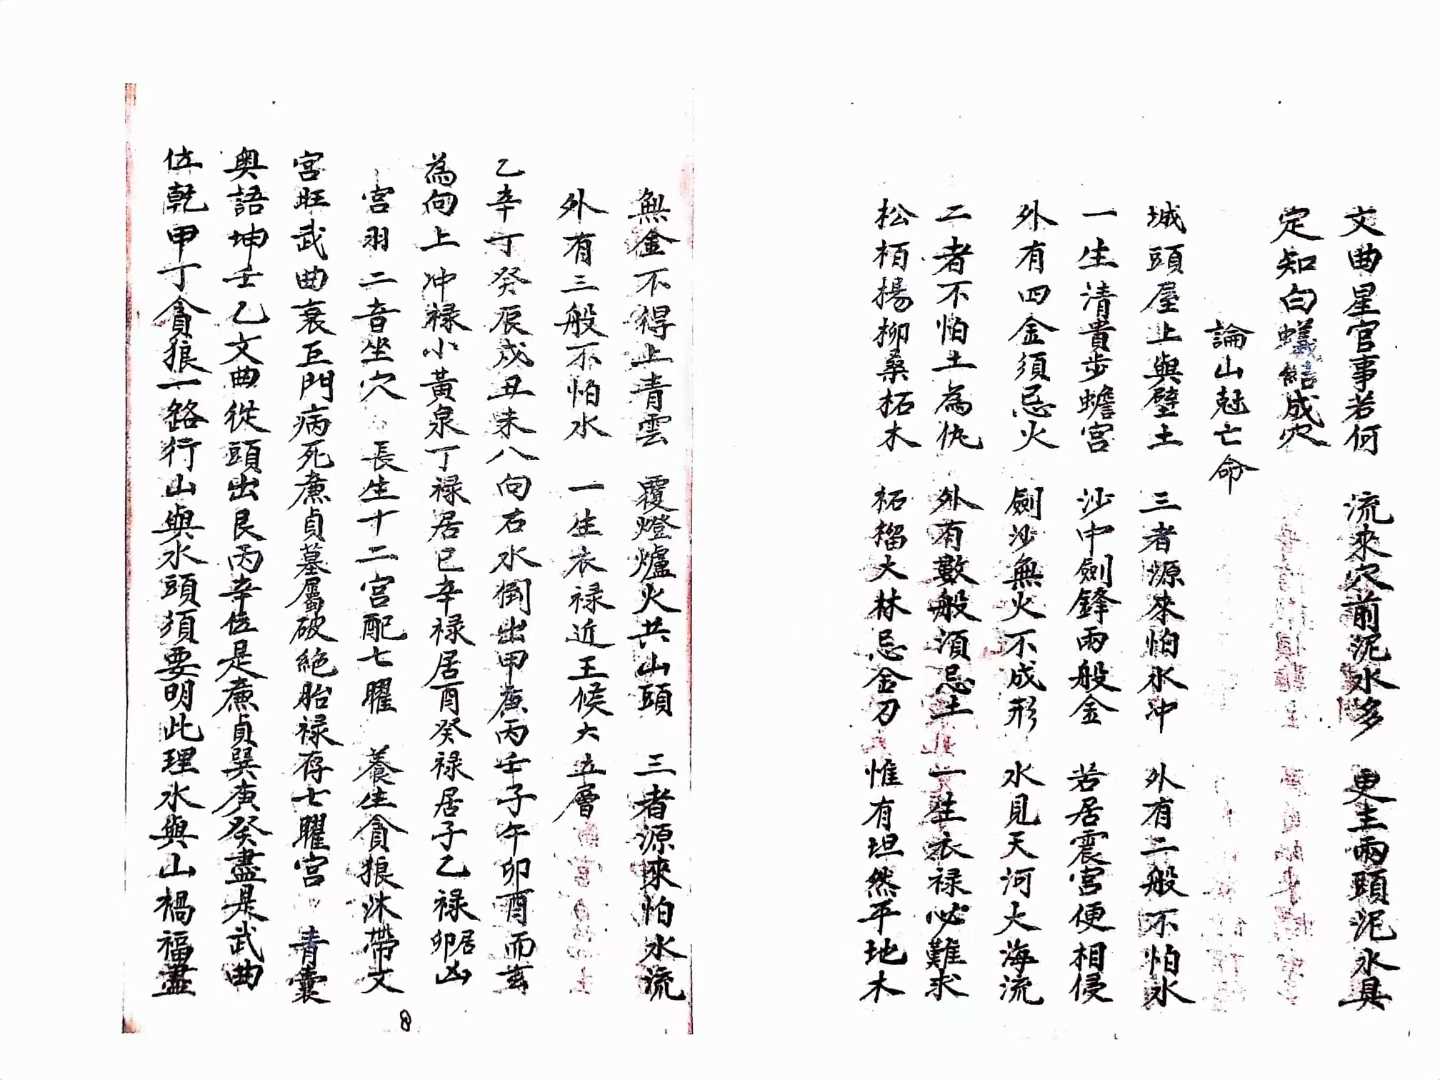 文曲星官事若何 流來穴前泥水多 更主兩頭泥水具
定知白蟻結成穴
論山尅亡命
城頭屋上與壁土 三者源來怕水冲 外有二般不怕水
一生清貴步蟾宮 沙中劍鋒兩般金 若居震宮便相侵
外有四金須忌火 劍沙無火不成形 水見天河大海流
二者不怕土為仇 外有數般須忌土 一生衣禄必難求
松栢楊柳桑柘木 石榴大林忌金刀 惟有坦然平地木
無金不得上青雲 覆燈爐火共山頭 三者源來怕水流
外有三般不怕水 一生衣禄近王候 大五層
乙辛丁癸辰戌丑未八向右水倒出甲庚丙壬子午卯酉而言
為向上冲禄小黃泉丁禄居巳辛禄居酉癸禄居子乙禄居卯凶
宮羽二音坐穴 長生十二宮配七曜 養生貪狼沐帶文
宮旺武曲衰巨門病死廉貞墓屬破絶胎禄存七曜宮 青囊
奥語坤壬乙文曲從頭出艮丙辛位是廉貞巽庚癸盡是武曲
位乾甲丁貪狼一路行山與水頭須要明此理水與山禍福盡
8